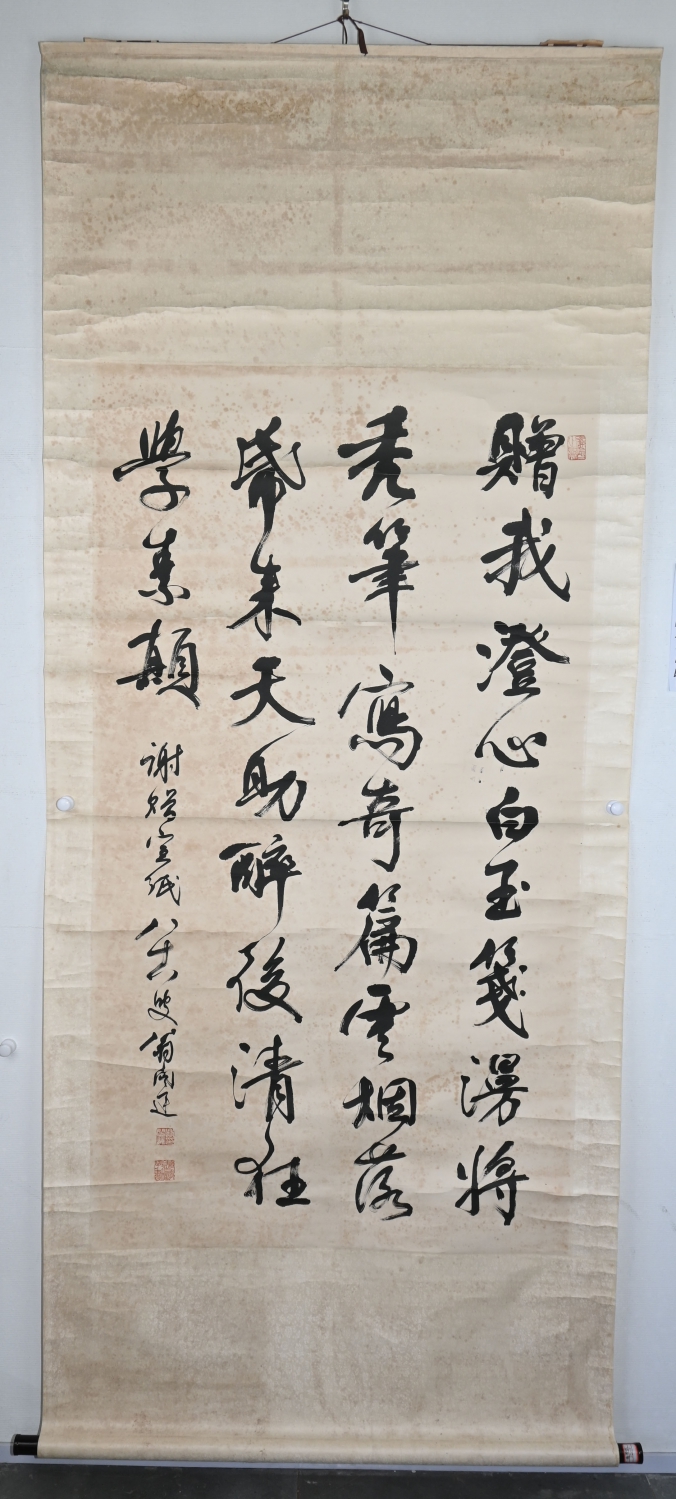 贈我澄心白玉箋漫將
禿筆寫奇篇雲烟落
紫来天助醉後清狂
學素顛
謝贈宣紙八十六叟翁闓運